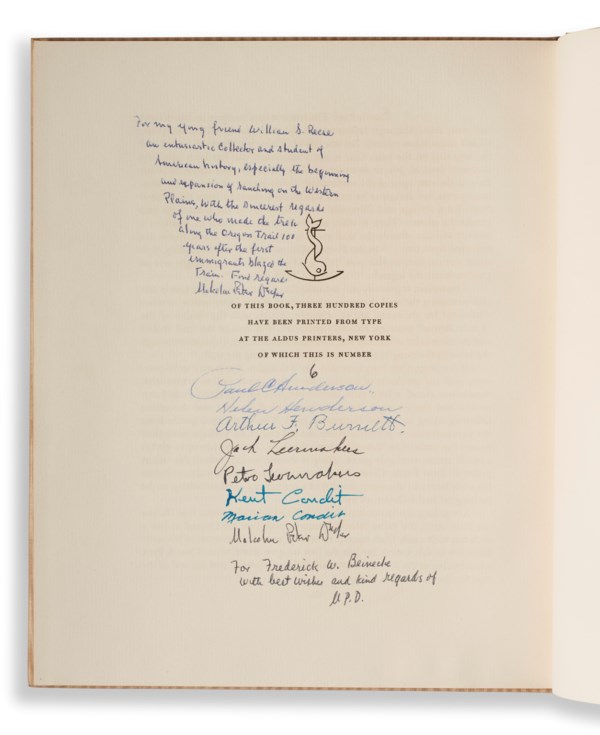 For my yong friend William S. Reese
an entusiastic collector and student of
American history, especially the beginning
and expansion of ranching on the Western
Plains, with the sincerest regards
of one who made the trek
along the Oregon Trail 100
years after the first
immigrants blazed the
Train. Fond regards
Malcolm Peter
OF THIS BOOK, THREE HUNDRED COPIES
HAVE BEEN PRINTED FROM TYPE
AT THE ALDUS PRINTERS, NEW YORK
OF WHICH THIS IS NUMBER
6
Paul C Henderson.
Helen Henderson
Arthur F. Burnett.
Jack Leermakers
Petro Leermakers
Kent Condit
Marian Condit
Malcolm Peter
For Frederick W. Beinecke
with best wishes and kind regards of
M.P.D.